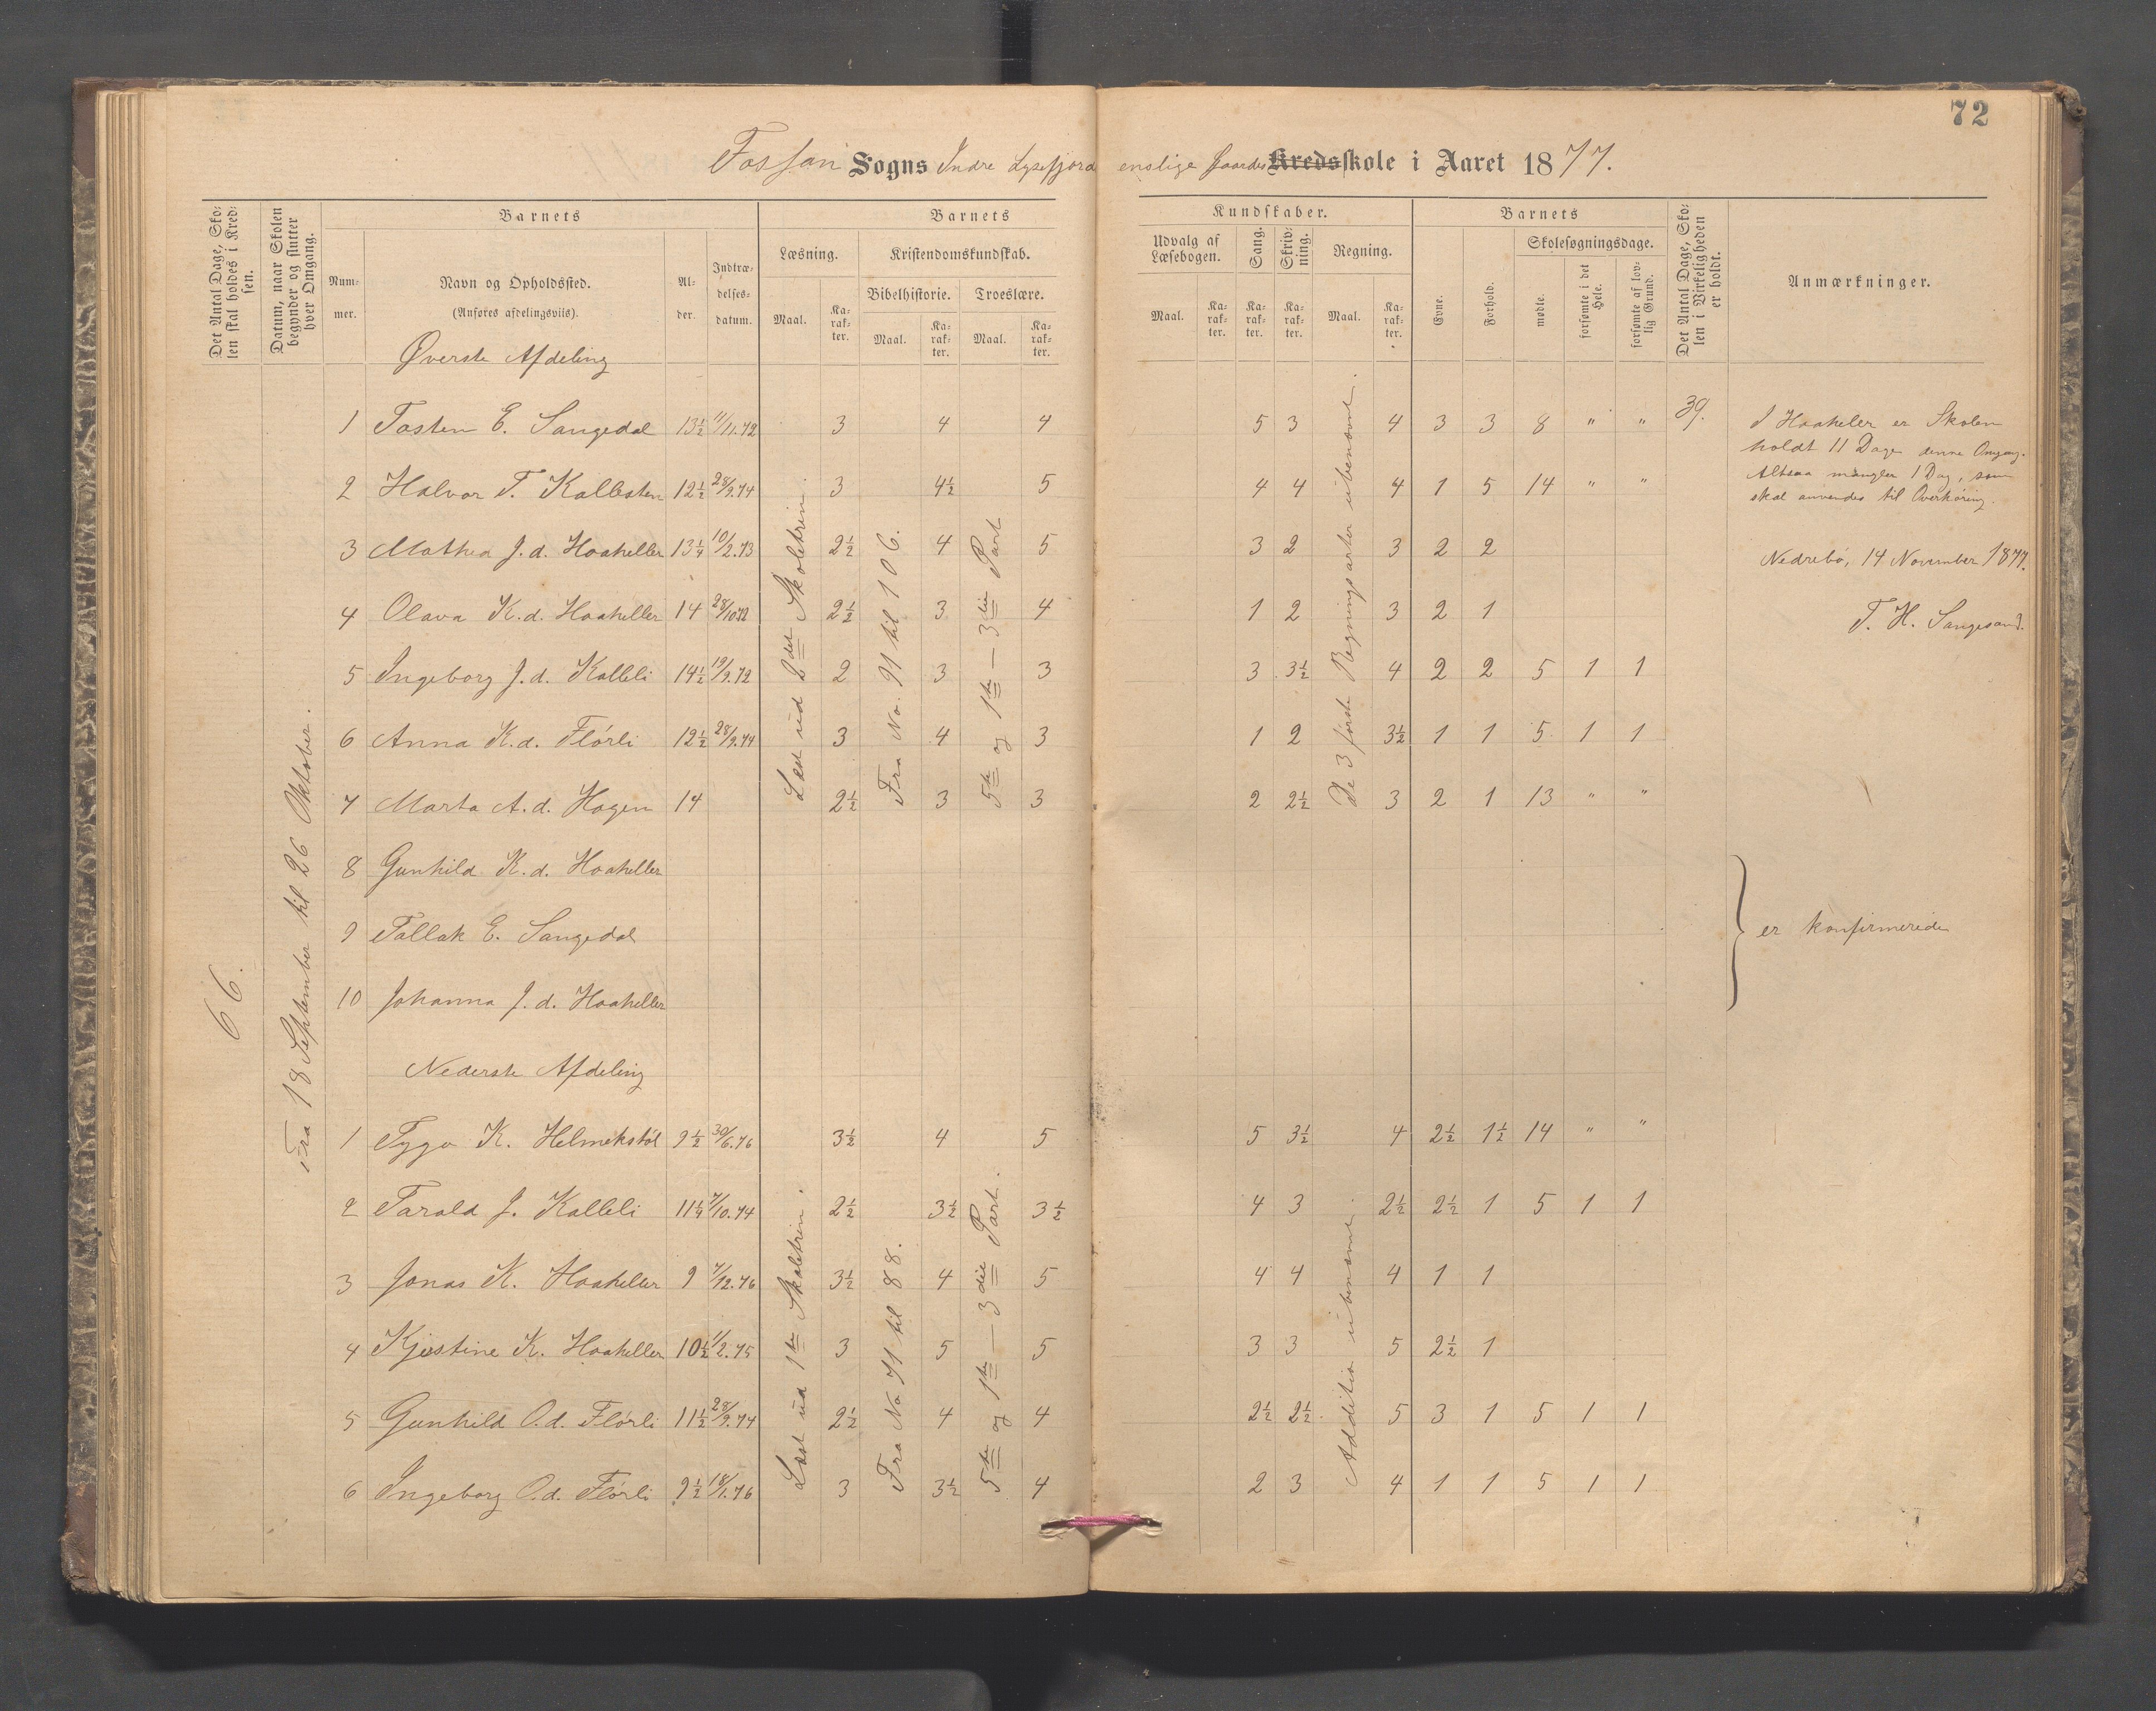 72
Fossan Sogns Indre Lysefjord enslige Gaardes Kredsskole i Aaret 1877.
Det Antal Dage, Skolen skal holdes i Kredsen.
Datum, naar Skolen begynder og slutter hver Omgang.
Barnets
Nummer.
Navn og Opholdssted.
(Anføres afdelingsviis).
Alder.
Indtrædelsesdatum.
Barnets Kundskaber.
Læsning.
Maal.
Karakter.
Kristendomskundskab.
Bibelhistorie.
Maal.
Karakter.
Troeslære.
Maal.
Karakter.
Udvalg af Læsebogen.
Maal.
Karakter.
Sang.
Karakter.
Skrivning.
Karakter.
Regning.
Maal.
Karakter.
Barnets
Evne.
Forhold.
Skolesøgningsdage.
mødte.
forsømte i det Hele.
forsømte af lovlig Grund.
Det Antal Dage, Skolen i Virkeligheden er holdt.
Anmærkninger.
66.
Fra 18 September til 26 Oktober.
Øverste Afdeling
Læst ud 2det Skoletrin.
Fra No. 91 til 106.
5te og 1ste — 3die Part
De 3 første Regningsarter ubenævnt.
1 Tosten E. Sangedal 13½ 11/11.72 3 4 4 5 3 4 3 3 8 " " 39.
2 Halvor T. Kallesten 12½ 28/9.74 3 4½ 5 4 4 4 1 5 14 " "
3 Mathea J.d. Haaheller 13¼ 10/2.73 2½ 4 5 3 2 3 2 2
4 Olava K.d. Haaheller 14 28/10.72 2½ 3 4 1 2 3 2 1
5 Ingeborg J.d. Kalleli 14½ 19/9.72 2 3 3 3 3½ 4 2 2 5 1 1
6 Anna K.d. Flörli 12½ 28/9.74 3 4 3 1 2 3½ 1 1 5 1 1
7 Marta A.d. Hagen 14 2½ 3 3 2 2½ 3 2 1 13 " "
8 Gunhild K.d. Haaheller
9 Tallak E. Sangedal
10 Johanna J.d. Haaheller
I Haaheler er Skolen
holdt 11 Dage denne Omgang.
Altsaa mangler 1 Dag, som
skal anvendes til Overhøring.
Nedrebö, 14 November 1877.
T. H. Sangesand.
er konfirmerede
Nederste Afdeling
Læst ud 1ste Skoletrin.
Fra No 71 til 88.
5te og 1ste — 3die Part.
Addition ubenævnt.
1 Tygo K. Helmikstöl 9½ 30/6.76 3½ 4 5 5 3½ 4 2½ 1½ 14 " "
2 Tarald J. Kalleli 11¼ 7/10.74 2½ 3½ 3½ 4 3 2½ 2½ 1 5 1 1
3 Jonas K. Haaheller 9 7/12.76 3½ 4 5 4 4 4 1 1
4 Kjestine K. Haaheller 10½ 11/2.75 3 5 5 3 3 5 2½ 1
5 Gunhild O.d. Flörli 11½ 28/9.74 2½ 4 4 2½ 2½ 5 3 1 5 1 1
6 Ingeborg O.d. Flörli 9½ 18/1.76 3 3½ 4 2 3 4 1 1 5 1 1